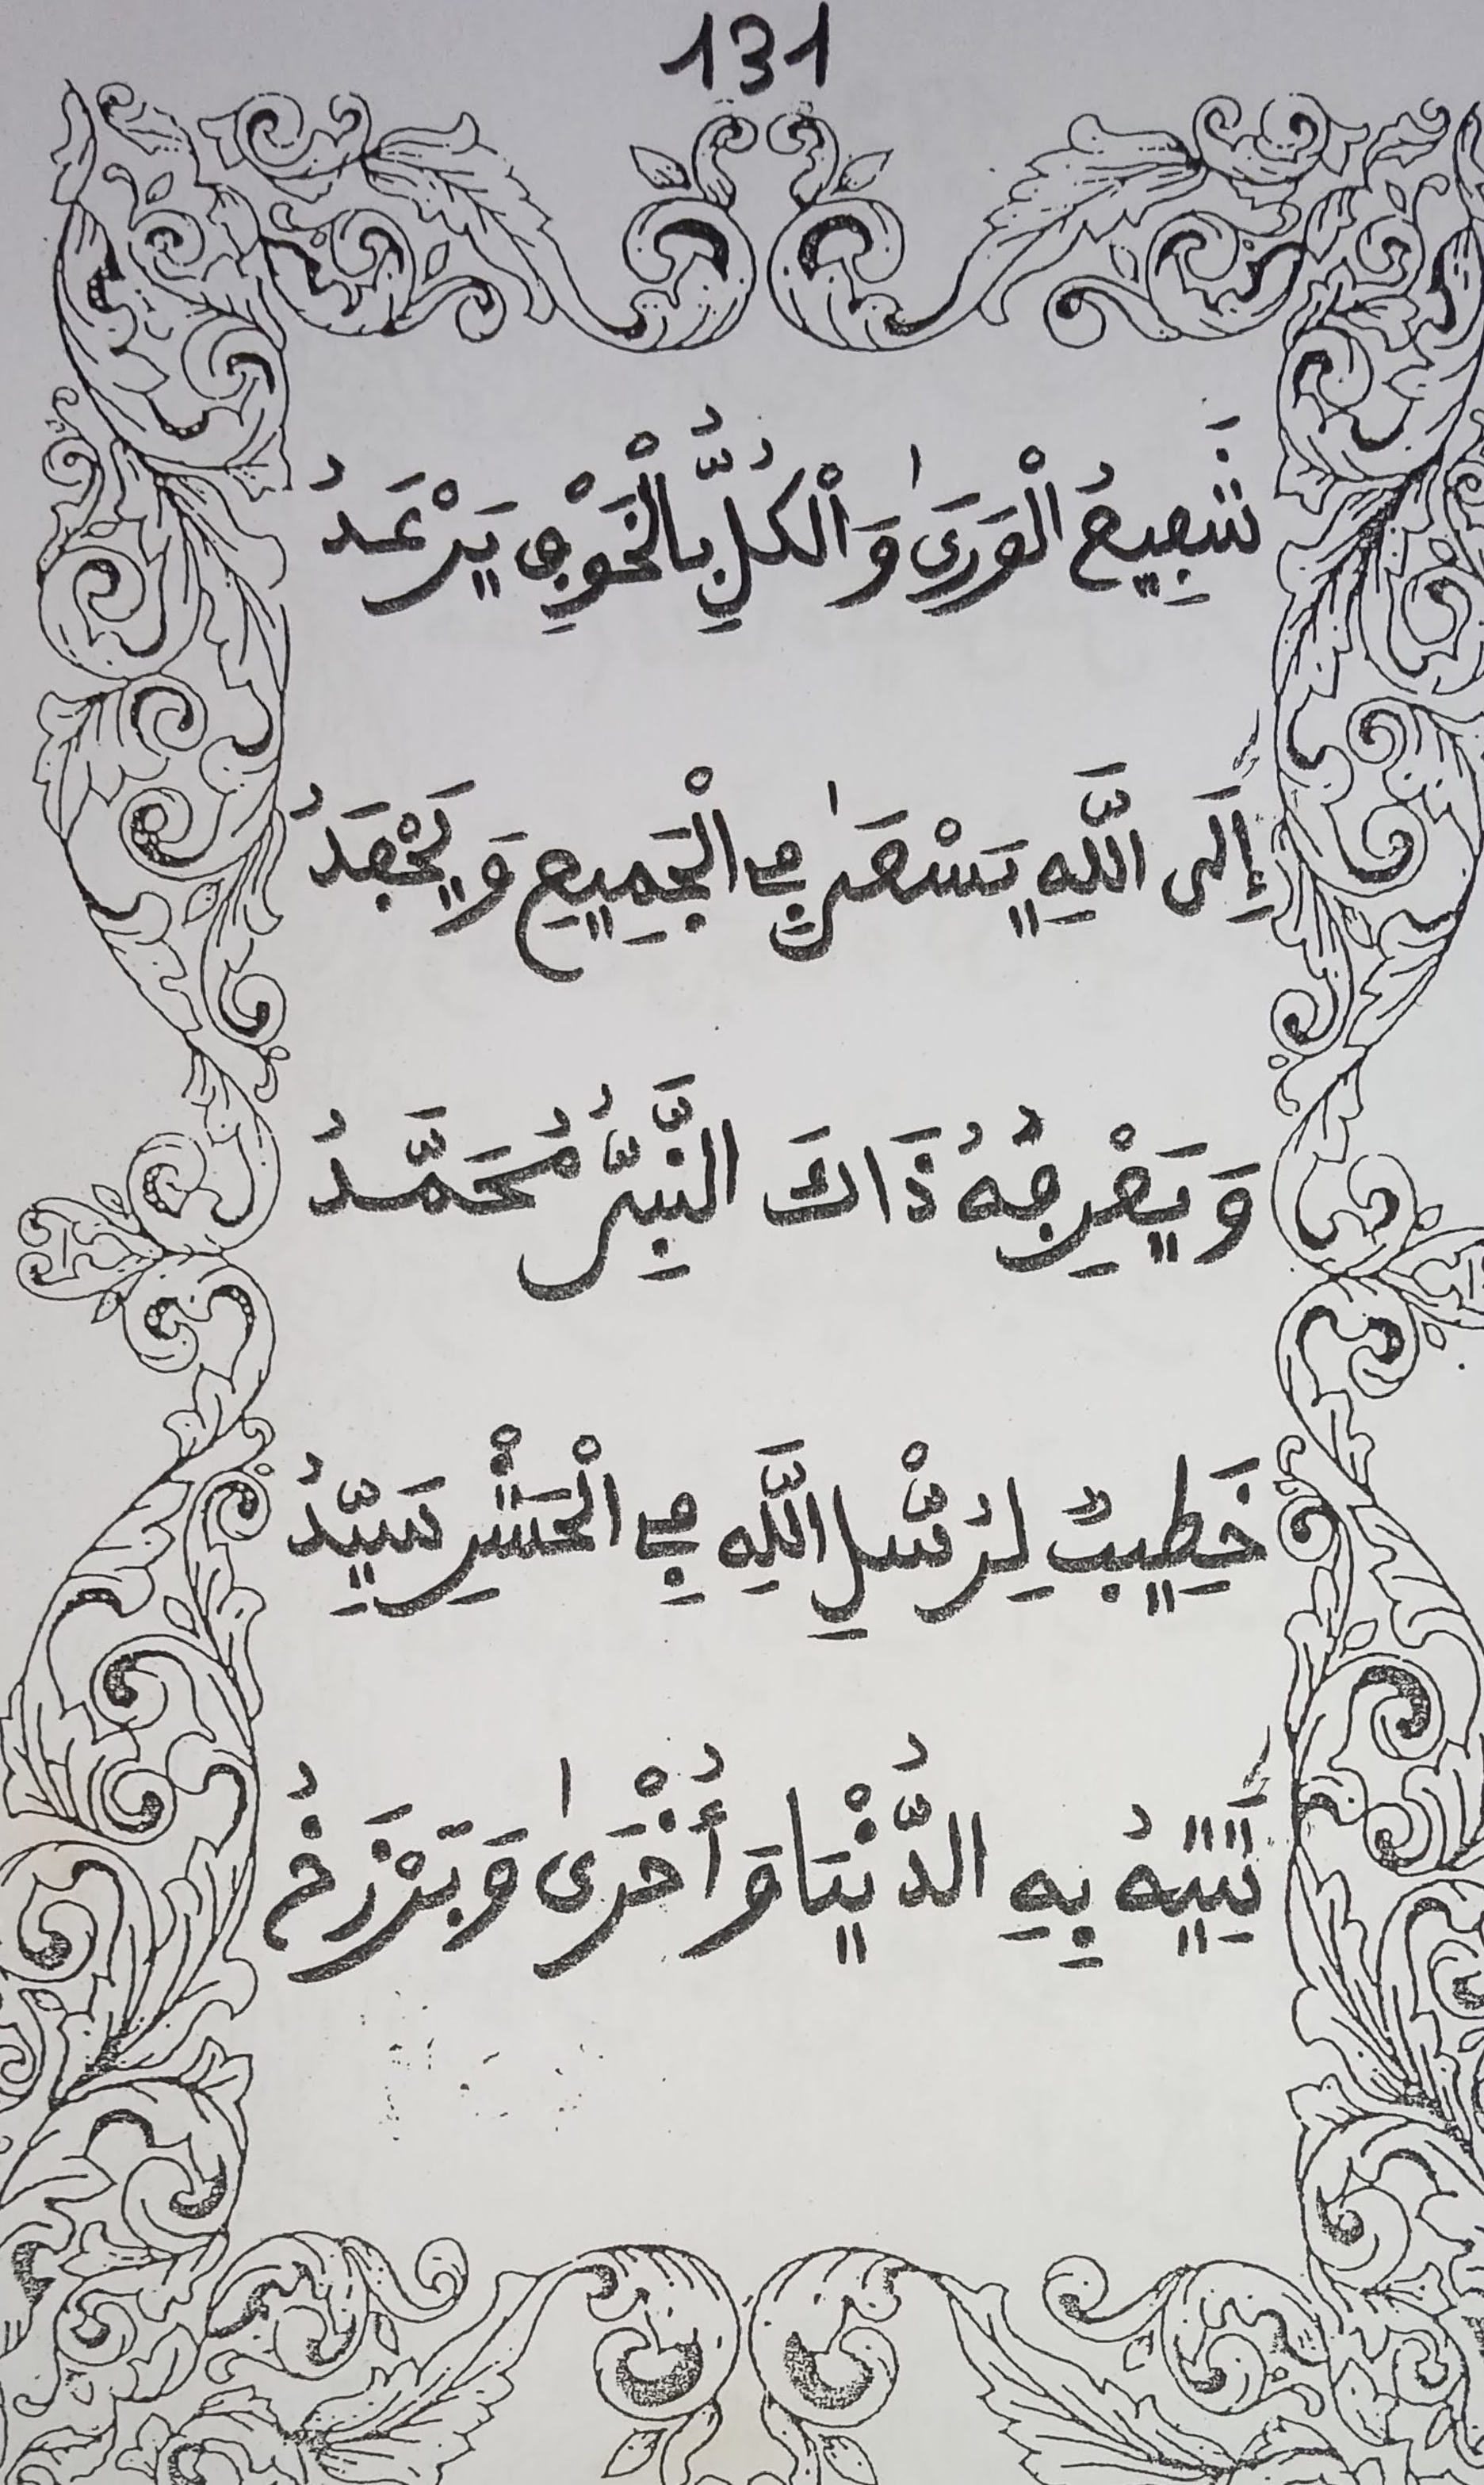 131
شَفِيعُ الْوَرَىٰ وَالْكُلُّ بِالْخَوْفِ يَرْعَدُ
إِلَى اللَّهِ يَسْعَىٰ فِي الْجَمِيعِ وَيَحْفَدُ
وَيَعْرِفُهُ ذَاكَ النَّبِيُّ مُحَمَّدُ
خَطِيبٌ لِرُسْلِ اللَّهِ فِي الْحَشْرِ سَيِّدُ
تَتِيهُ بِهِ الدُّنْيَا وَأُخْرَىٰ وَبَرْزَخُ